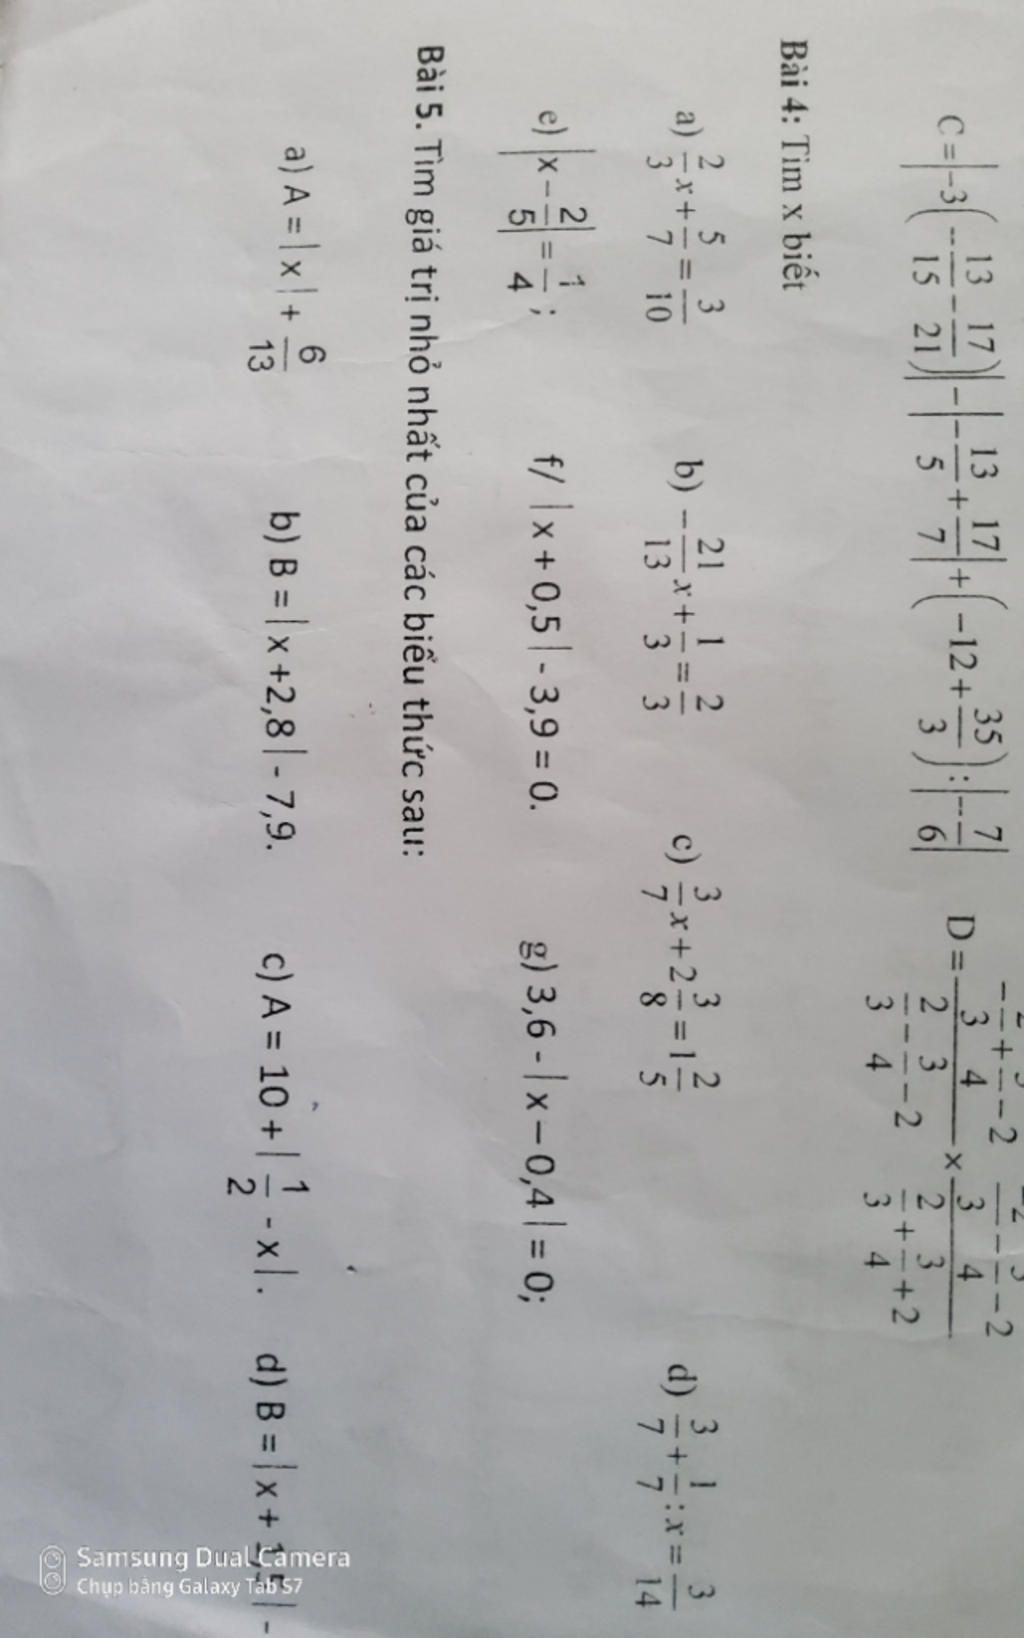 C = |-3(-13/15 - 17/21)| - |-13/5 + 17/7| + (-12 + 35/3) : |--7/6|
D = (-2/3 + 3/4 - 2)/(2/3 - 3/4 - 2) × (-2/3 - 3/4 - 2)/(2/3 + 3/4 + 2)
Bài 4: Tìm x biết
a) 2/3 x + 5/7 = 3/10 b) -21/13 x + 1/3 = 2/3 c) 3/7 x + 2 3/8 = 1 2/5 d) 3/7 + 1/7 : x = 3/14
e) |x - 2/5| = 1/4 ; f/ | x + 0,5 | - 3,9 = 0. g) 3,6 - | x – 0,4 | = 0;
Bài 5. Tìm giá trị nhỏ nhất của các biểu thức sau:
a) A = | x | + 6/13 b) B = | x +2,8 | - 7,9. c) A = 10 + | 1/2 - x |. d) B = | x + 1,5 | -
Samsung Dual Camera
Chụp bằng Galaxy Tab S7